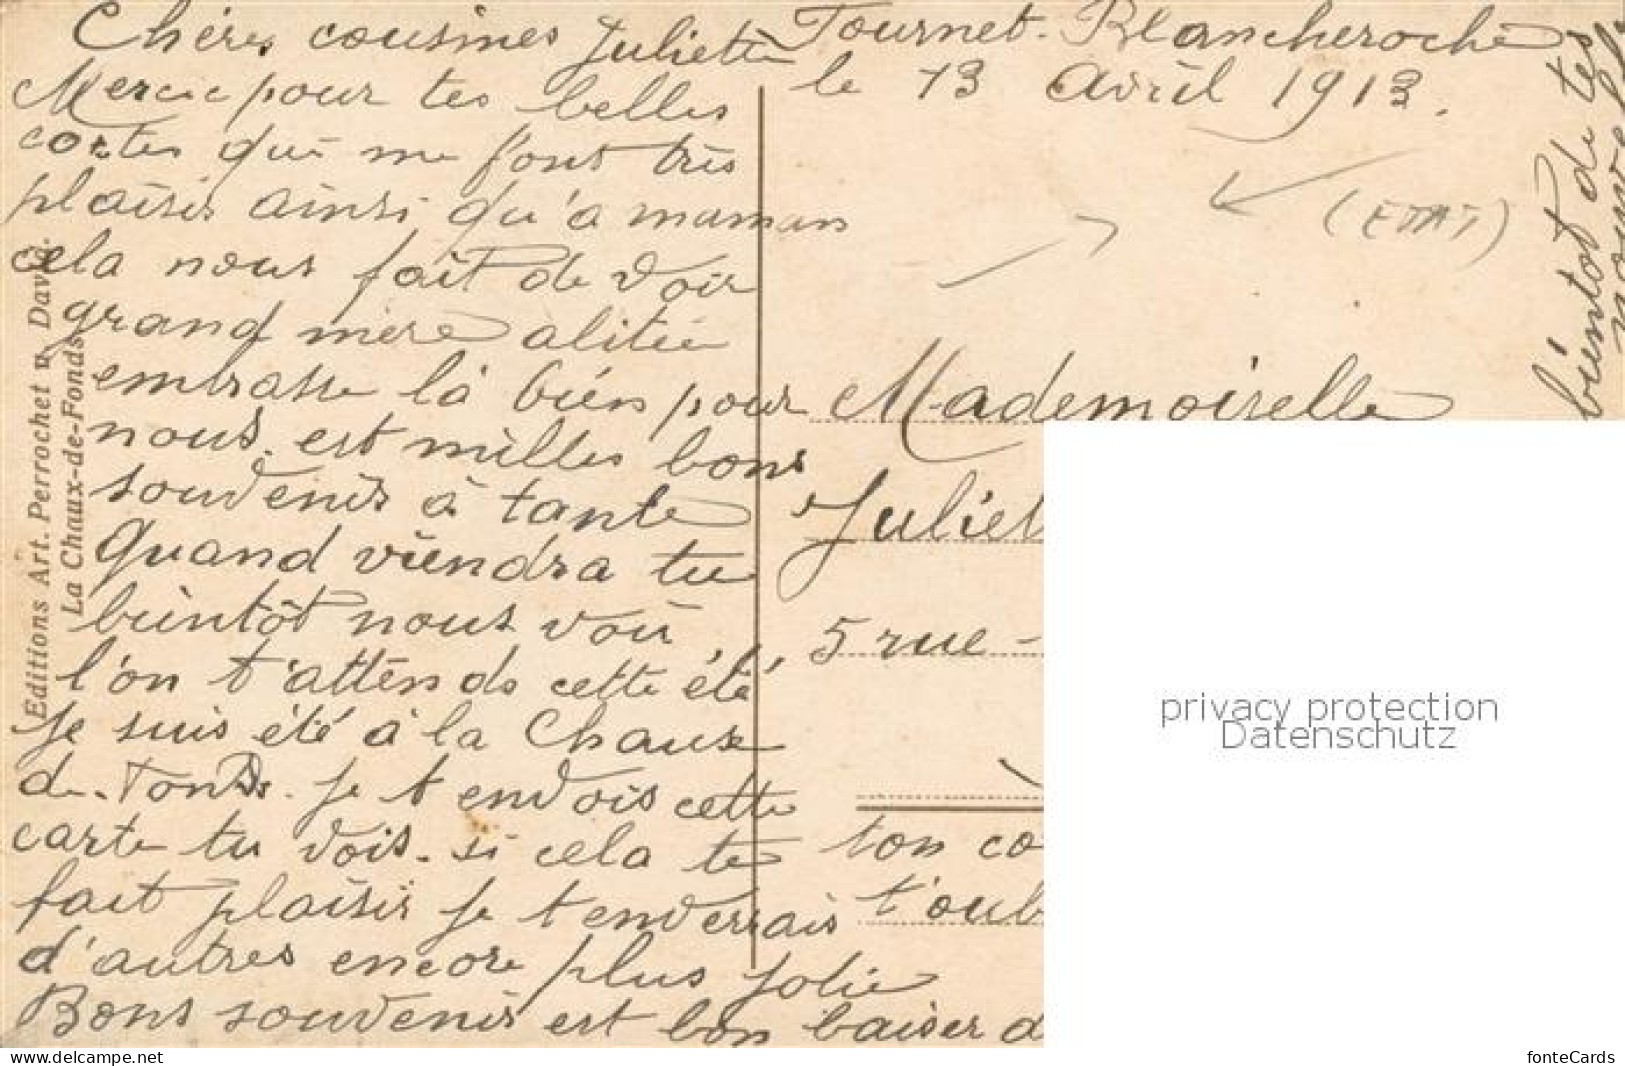 Chère cousines Juliette
Merci pour tes belles
cartes qui me font très
plaisir ainsi qu'a maman
cela nous fait de voir
grand mère alitée
embrasse là bien pour
nous. est milles bons
souvenirs à tante
Quand viendra tu
bientôt nous voir
l'on t'attends cette été
Je suis été à la Chaux
de. Fonds. Je t envois cette
carte tu vois. si cela te
fait plaisir je t enverrais
d'autres encore plus jolie
Bons souvenirs est bon baiser d
Tournet. Blancheroche
le 13 avril 1913.
(ETAT)
Mademoiselle
Juliet
5 rue -
ton co
t'oub
bientot de tes
Editions Art. Perrochet u. David.
La Chaux-de-Fonds
privacy protection
Datenschutz
www.delcampe.net
fonteCards